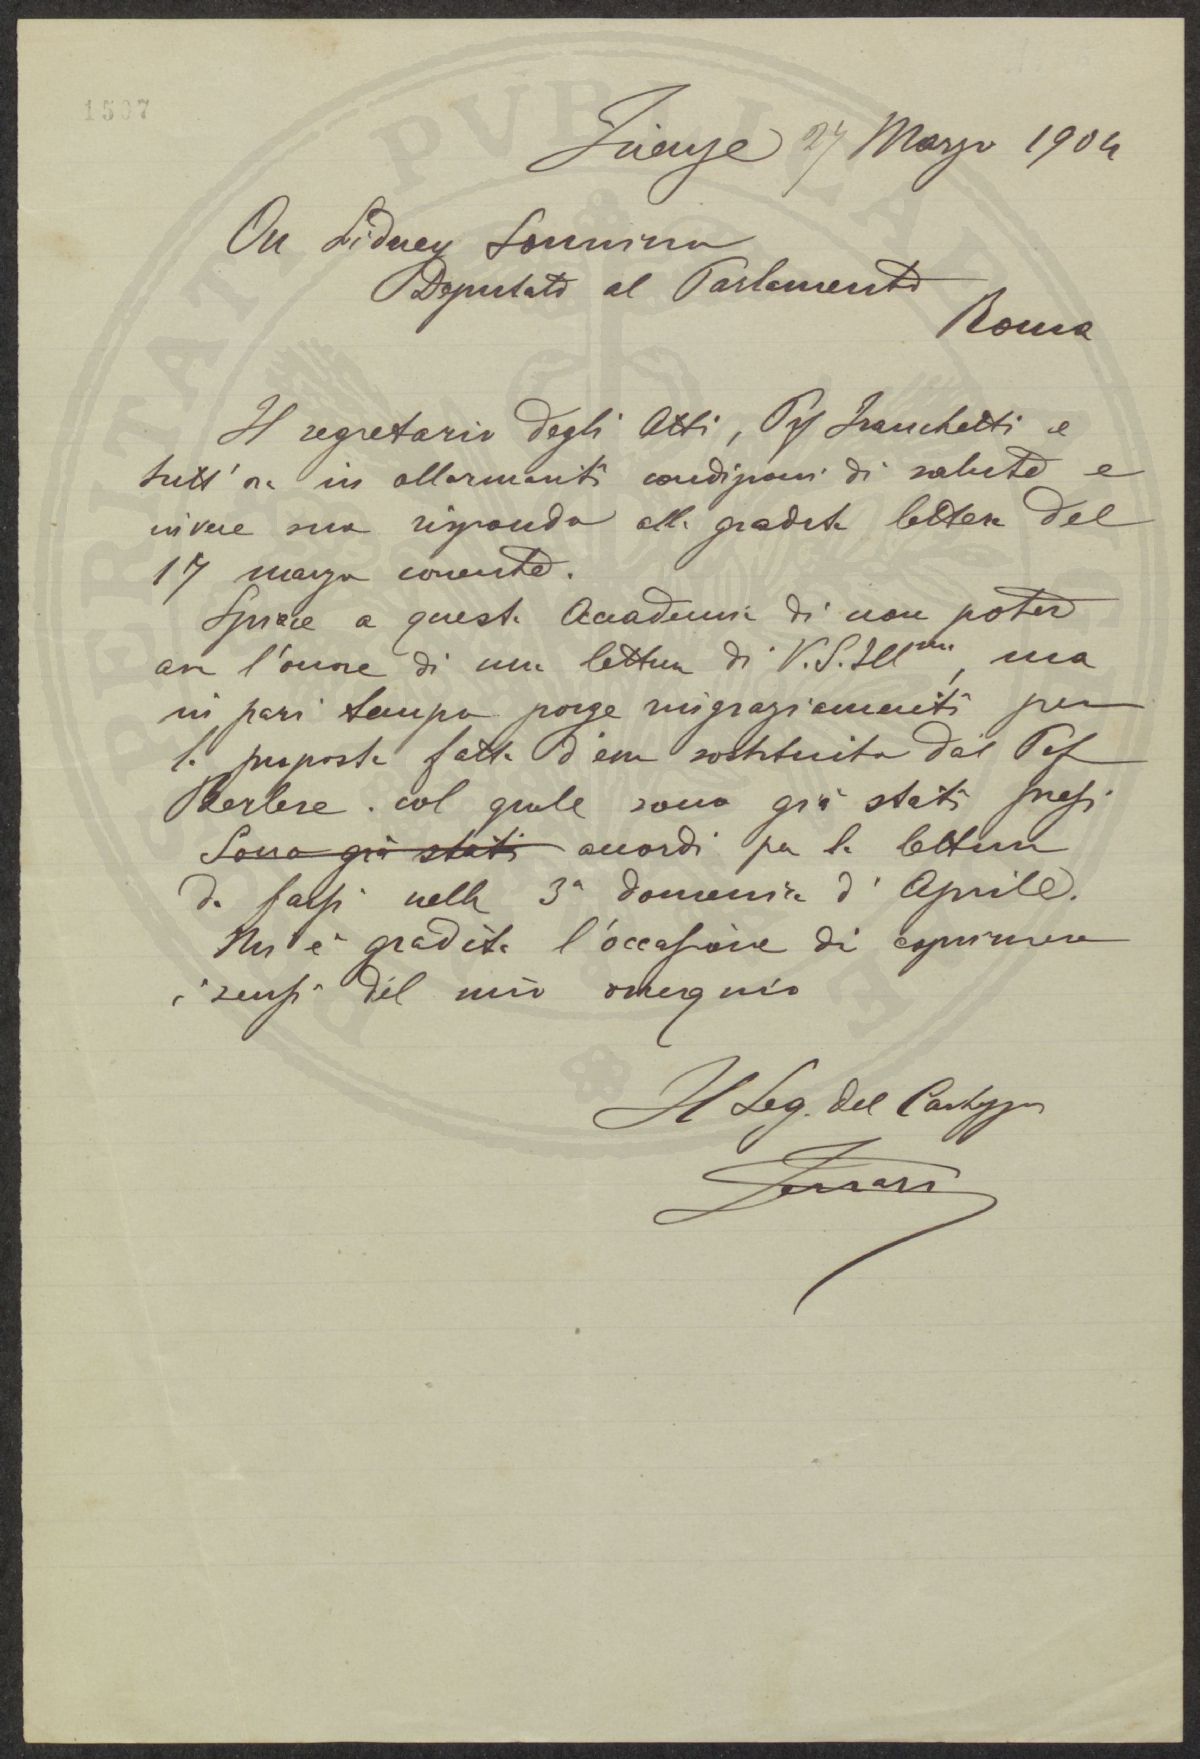 1507
Firenze 27 Marzo 1904
On Sidney Sonnino
Deputato al Parlamento
Roma
Il segretario degli Atti, Prf Franchetti e
tutt'ora in allarmanti condizioni di salute e
invece sua rispondo alla gradita lettera del
17 marzo corrente.
Spiace a questa Accademia di non poter
aver l'onore di una lettura di V.S.Ill^ma, ma
in pari tempo porge ringraziamenti per
la proposta fatta d'esser sostituita dal Prf
col quale sono già stati presi
Sono già stati accordi per la lettura
da farsi nella 3ª domenica d'Aprile.
Mi è gradita l'occasione di esprimere
i sensi del mio ossequio
Il Seg. del Carteggio
Ferrari